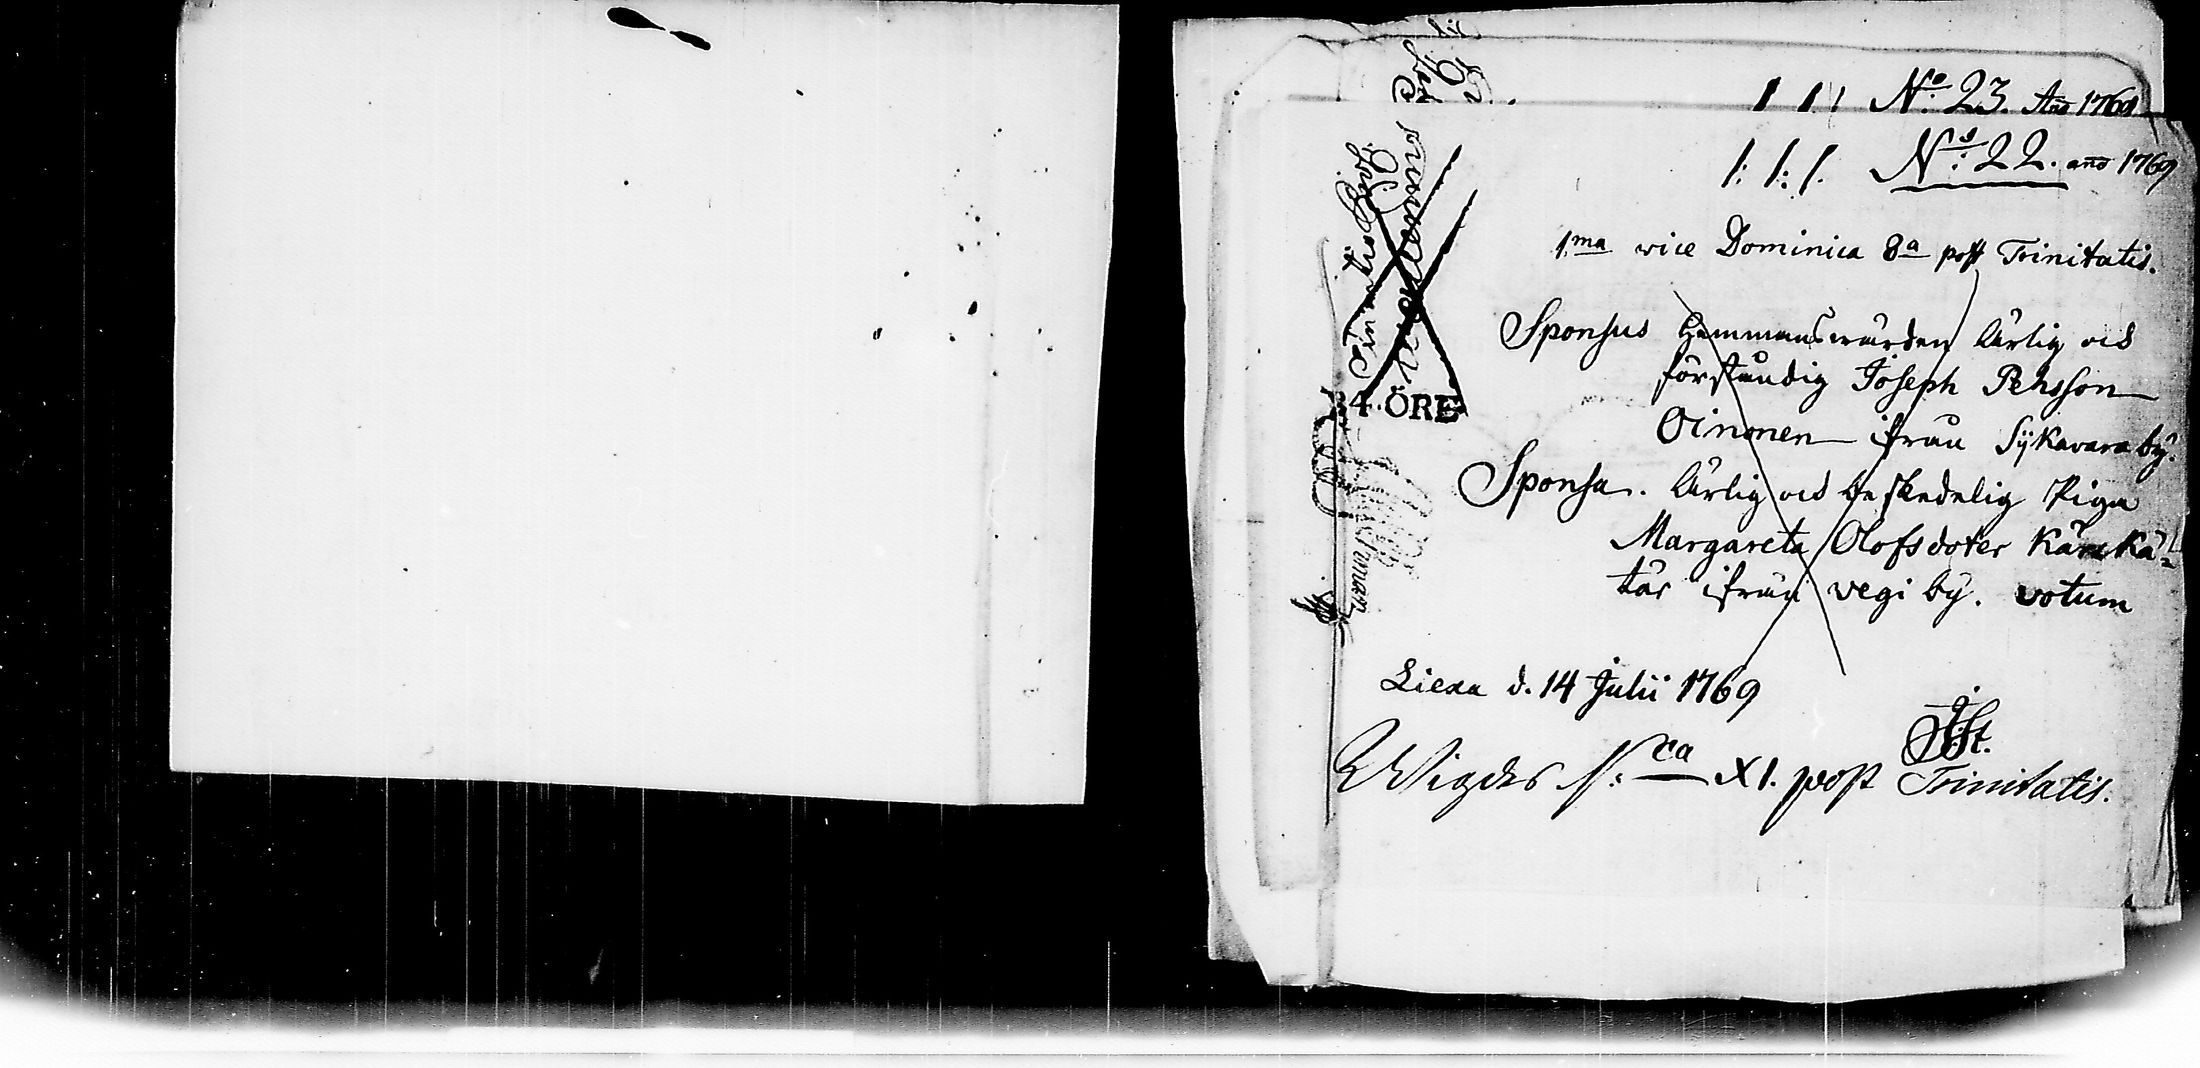 1 1 1 No 23. Año 1769
1: 1: 1. No: 22. año 1769
1ma vice Dominica 8a post Trinitatis.
Sponsus Hemmanswärden Ärlig och
förståndig Joseph Pehrsson
Oinonen ifrån Sÿkavara bÿ.
Sponsa. Ärlig och beskedelig Piga
Margareta Olofsdoter
tär ifrån vegi bÿ. votum
Liexa d. 14 Julii 1769
Wigdes XI. post Trinitatis.
4. ÖRE